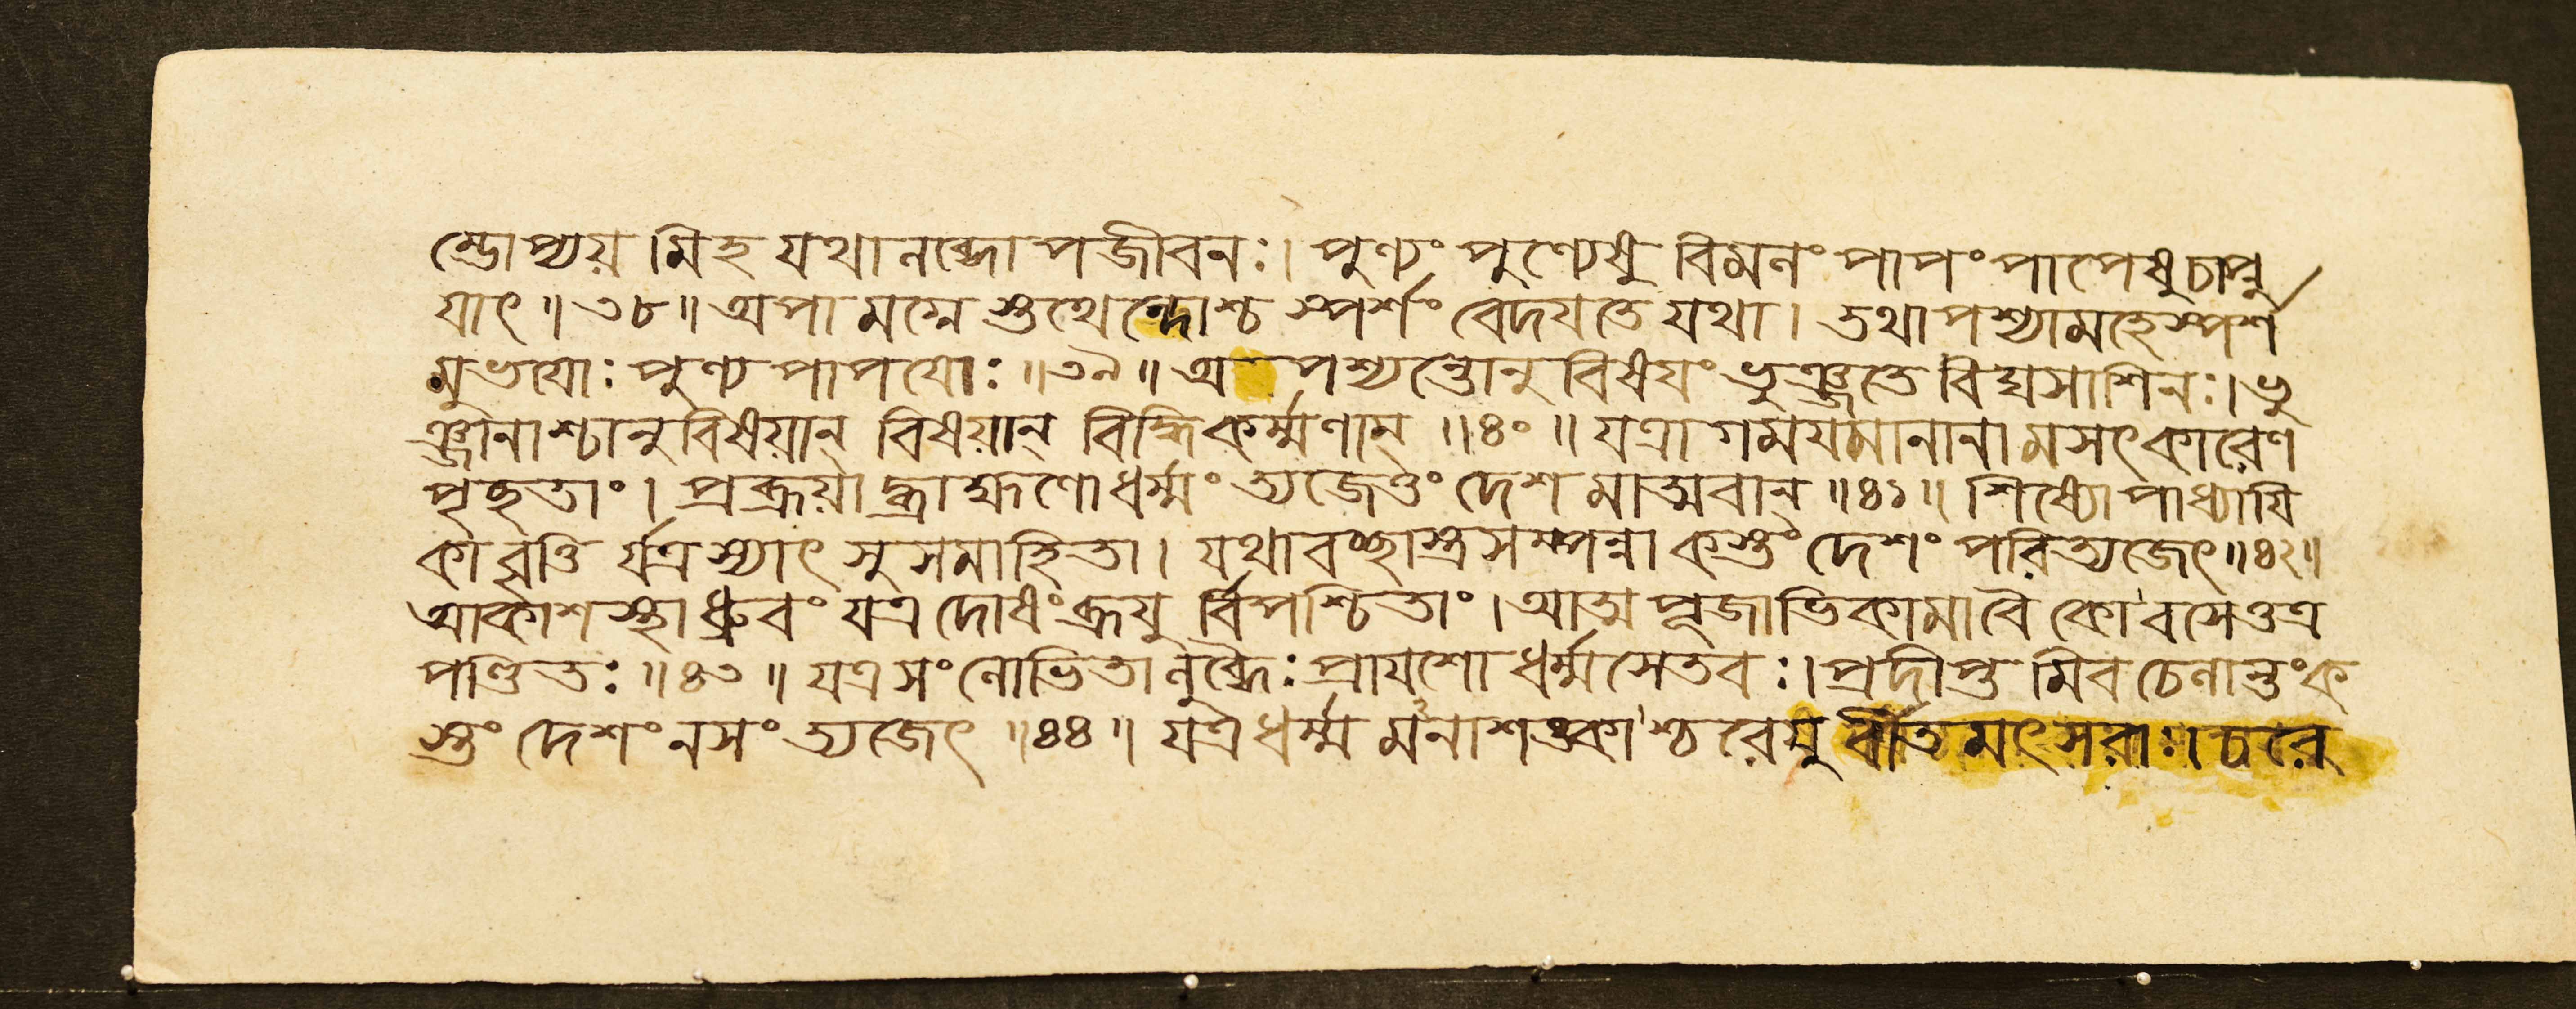 ন্ড্রোপ্যয় মিহ যথানব্দোপজীবনঃ। পুণ্যং পুণ্যেষু বিমনং পাপং পাপেষুচাপ্নু
যাৎ ॥ ৩৮ ॥ অপামগ্নে স্তুথেন্দোশ্চ স্পর্শং বেদযতে যথা। তথাপশ্যামহেস্পর্শ
মুভযোঃ পুণ্য পাপযোঃ ॥৩৯॥ অ পশ্যন্তোনুবিষযং ভুঞ্জতে বিঘ্যসাশিনঃ। ভু
ঞ্জানাশ্চানুবিষয়ান্ বিষয়ান্ বিদ্ধিকর্ম্মণাম্ ॥৪০॥ যত্রাগমযমানানামসৎকারেণ
পৃচ্ছতাং। প্রব্রূয়াদ্ব্রাহ্মণোধর্ম্মং ত্যজেত্তং দেশমাত্মবান্ ॥৪১॥ শিষ্যোপাধ্যাযি
কাবৃত্তি র্যত্রস্যাৎ সুসমাহিতা। যথাবচ্ছাস্ত্রসম্পন্না কস্তং দেশং পরিত্যজেৎ॥৪২॥
আকাশস্থাধ্রুবং যত্র দোষংব্রূযু র্বিপশ্চিতাং। আত্মপূজাভিকামাবৈ কোবসেত্তত্র
পণ্ডিতঃ ॥৪৩॥ যত্রসংনোভিতানুব্ধৈঃ প্রাযশোধর্ম্মসেতবঃ। প্রদীপ্তমিব চেনান্তংক
স্তং দেশংনসংত্যজেৎ ॥৪৪॥ যত্রধর্ম্মমনাশঙ্কাশ্চরেযুর্বীতমৎসরাঃ। চরে